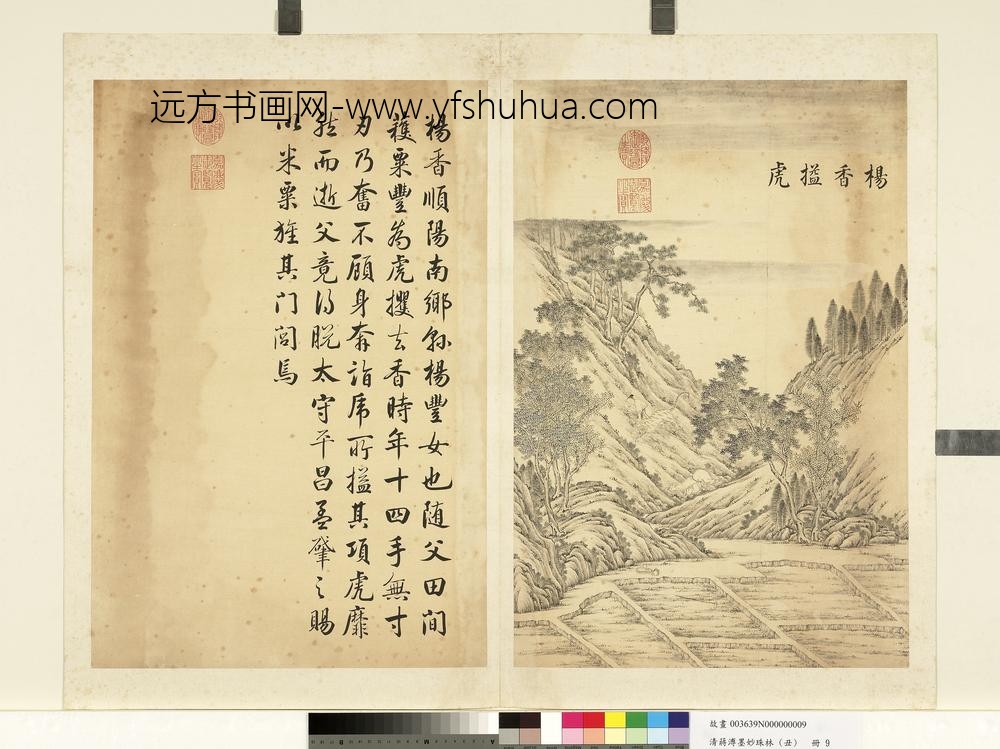 远方书画网-www.yfshuhua.com
楊香搤虎
楊香順陽南鄉縣楊豐女也随父田間
穫粟豐為虎攫去香時年十四手無寸
刃乃奮不顧身奔詣虎所搤其項虎靡
然而逝父竟得脫太守平昌孟肇之賜
以米粟旌其门閭焉
故畫 003639N000000009
清蔣溥墨妙珠林（丑） 冊 9